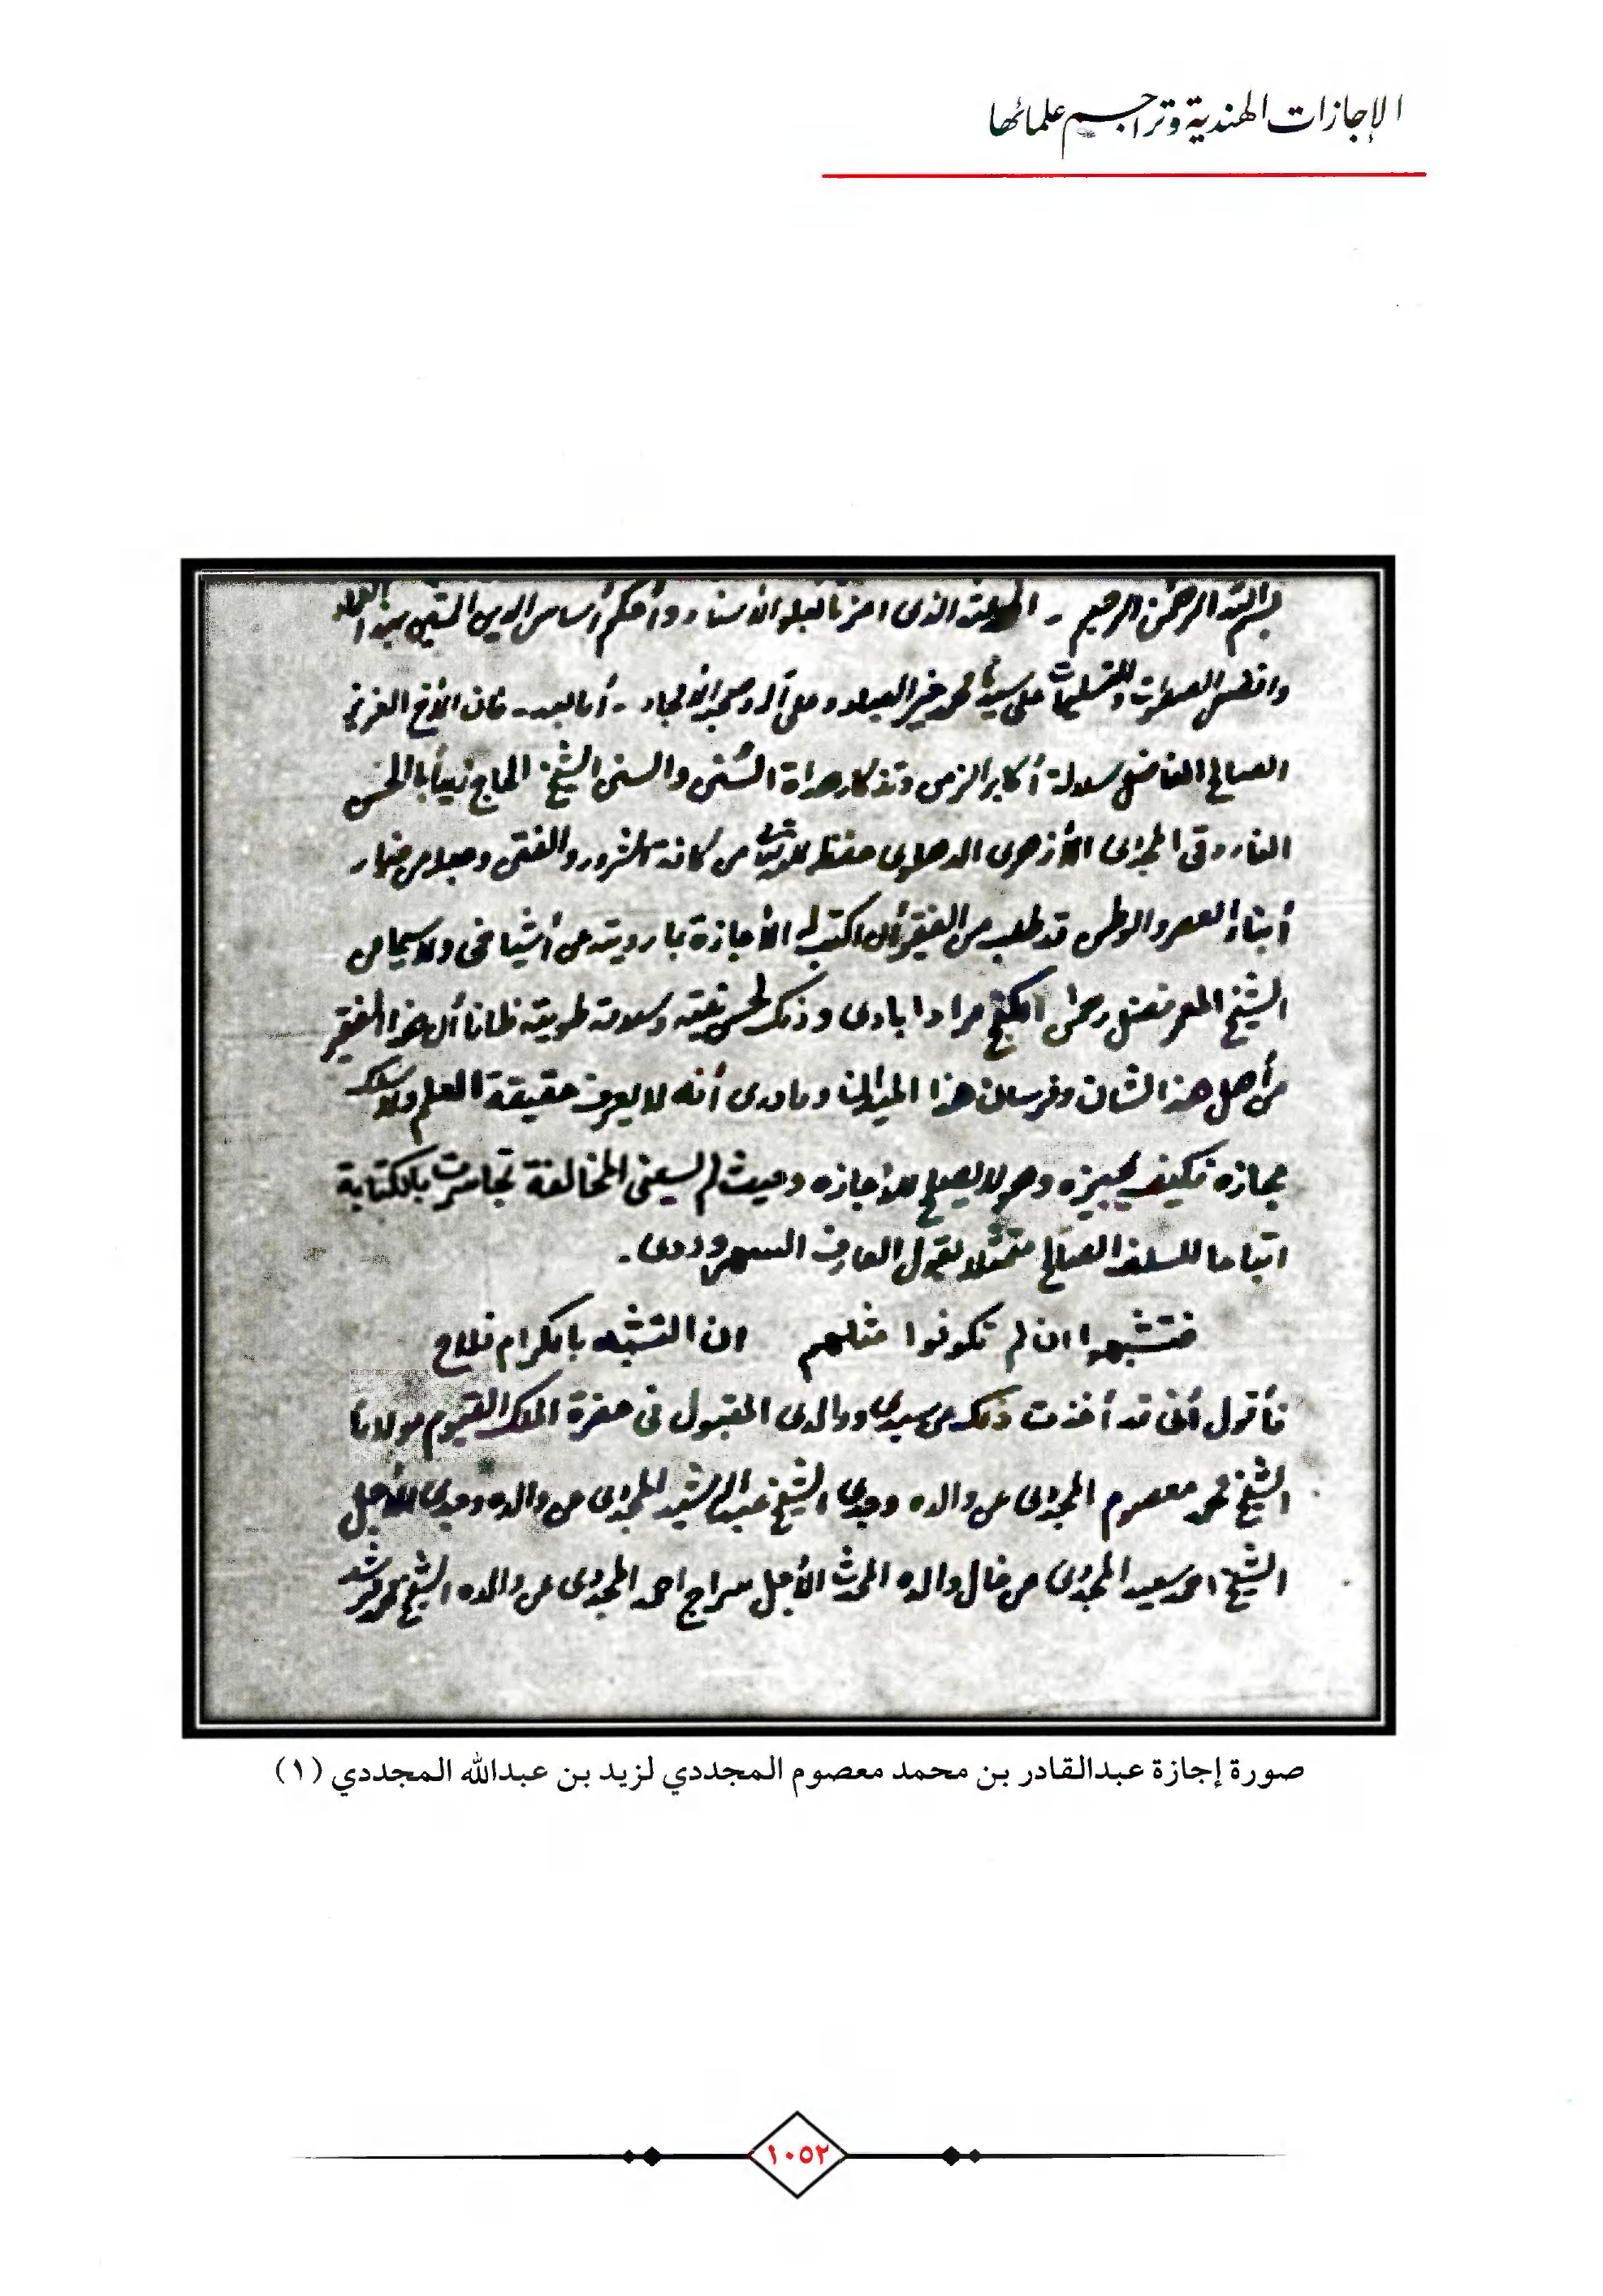 الإجازات الهندية وتراجم علمائها
بسم الله الرحمن الرحيم - الحمد لله الذي أعزنا بالعلو الأسناد وأحكم أساس الدين المتين بهذا العماد
وافضل الصلوات والتسليمات على سيدنا محمد خير العباد وعلى آله وصحبه الأنجاد - أما بعد - فان الأخ العزيز
الصالح الفاضل سلالة أكابر الزمن وتذكار هداة السُنن والسنن الشيخ الحاج زيد أبا الحسن
الفاروقي المجددى الأزهرى الدهلوى حفظه الله تعالى من كافة الشرور والفتن وجعله من خيار
أبناء العصر والوطن قد طلب من الفقير أن اكتب له الأجازة بما رويته عن أشياخى ولا سيما من
الشيخ المعمر فضل رحمن الگنج مراد ابادى وذلك لحسن نيته وسلامة طويته ظانا أن هذا الفقير
من أهل هذا الشان وفرسان هذا الميدان ومادرى أنه لا يعرف حقيقة العلم ولا سلك
مجازه فكيف يجيزه وهو لا يصلح للأجازه وحيث لم يسعنى المخالفة تجاسرت بالكتابة
اتباعا للسلف الصالح متمثلا بقول العارف السهروردى -
فتشبهوا ان لم تكونوا مثلهم ان التشبه بالكرام فلاح
فأقول أنى قد أخذت ذلك من سيدى ووالدى المقبول فى حضرة الملك القيوم مولانا
الشيخ محمد معصوم المجددى عن والده وجدى الشيخ عبد الرشيد المجددى عن والده وجدى الأجل
الشيخ احمد سعيد المجددى عن خال والده المحدث الأجل سراج احمد المجددى عن والده الشيخ محمد مرشد
صورة إجازة عبدالقادر بن محمد معصوم المجددي لزيد بن عبدالله المجددي (١)
١٠٥٢